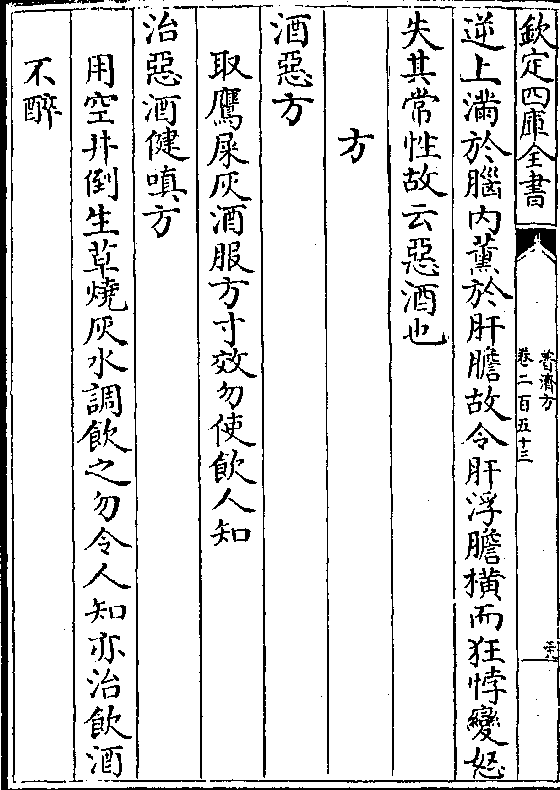 欽定四庫全書
普濟方
卷二百五十三
逆上滿於腦內薰於肝膽故令肝浮膽橫而狂悖變怒
失其常性故云惡酒也
方
酒惡方
取鷹屎灰酒服方寸效勿使飲人知
治惡酒健嗔方
用空井倒生草燒灰水調飲之勿令人知亦治飲酒
不醉